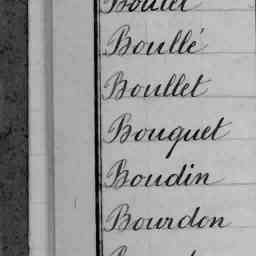 Boullé
Boullet
Bouquet
Boudin
Bourdon